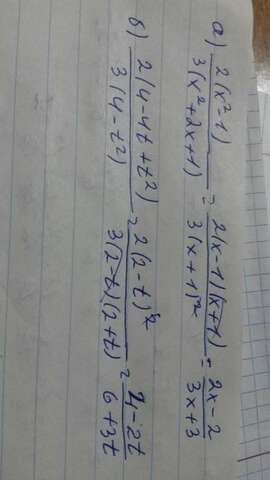 а) 2(x²-1) / 3(x²+2x+1) = 2(x-1)(x+1) / 3(x+1)² = 2x-2 / 3x+3
б) 2(4-4t+t²) / 3(4-t²) = 2(2-t)² / 3(2-t)(2+t) = 4-2t / 6+3t